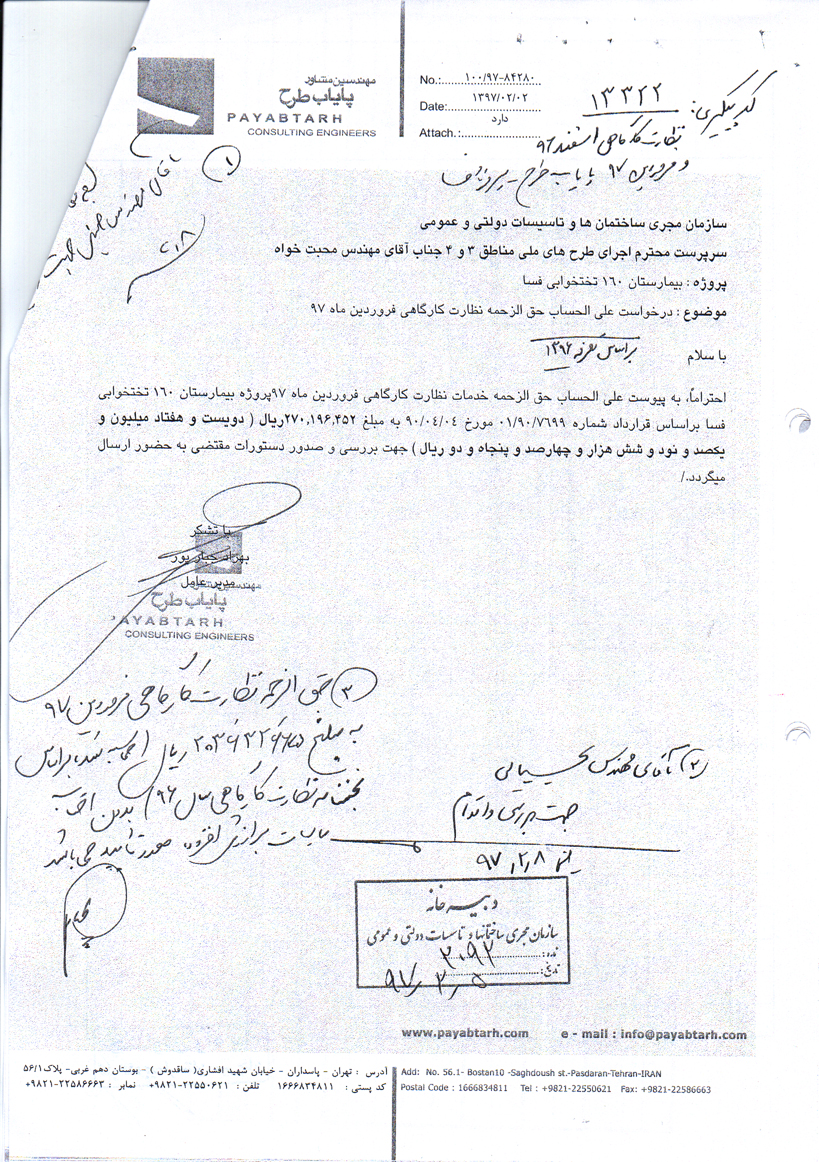 مهندسین مشاور
پایاب طرح
PAYABTARH
CONSULTING ENGINEERS
No.: ۱۰۰/۹۷-۸۴۲۸۰
Date: ۱۳۹۷/۰۲/۰۲
دارد
Attach.:
کد پیگیری: ۱۳۳۲۲
نظارت کارگاهی اسفند ۹۶
و فروردین ۹۷ پایاب طرح -
۱
آقای مهندس
سازمان مجری ساختمان ها و تاسیسات دولتی و عمومی
سرپرست محترم اجرای طرح های ملی مناطق ۳ و ۴ جناب آقای مهندس محبت خواه
پروژه : بیمارستان ۱۶۰ تختخوابی فسا
موضوع : درخواست علی الحساب حق الزحمه نظارت کارگاهی فروردین ماه ۹۷
با سلام
براساس تعرفه ۱۳۹۶
احتراماً، به پیوست علی الحساب حق الزحمه خدمات نظارت کارگاهی فروردین ماه ۹۷پروژه بیمارستان ۱۶۰ تختخوابی
فسا براساس قرارداد شماره ۰۱/۹۰/۷۶۹۹ مورخ ۹۰/۰۴/۰۴ به مبلغ ۲۷۰,۱۹۶,۴۵۲ریال ( دویست و هفتاد میلیون و
یکصد و نود و شش هزار و چهارصد و پنجاه و دو ریال ) جهت بررسی و صدور دستورات مقتضی به حضور ارسال
میگردد./
با تشکر
بهزاد جبار پور
مدیر عامل
مهندسین مشاور
پایاب طرح
PAYABTARH
CONSULTING ENGINEERS
۳ حق الزحمه نظارت کارگاهی فروردین ۹۷
به مبلغ ریال (محاسبه شده براساس
بخشنامه نظارت کارگاهی سال ۹۶) بدون احتساب
مالیات بر ارزش افزوده مورد تأیید می باشد
۲) آقای مهندس
جهت بررسی و اقدام
۹۷/۲/۸
دبیرخانه
سازمان مجری ساختمانها و تاسیسات دولتی و عمومی
شماره: ۲۰۹۲
تاریخ: ۹۷/۲/۵
www.payabtarh.com e - mail : info@payabtarh.com
آدرس : تهران - پاسداران - خیابان شهید افشاری( ساقدوش ) - بوستان دهم غربی- پلاک۵۶/۱
کد پستی : ۱۶۶۶۸۳۴۸۱۱ تلفن : ۲۲۵۵۰۶۲۱-۹۸۲۱+ نمابر : ۲۲۵۸۶۶۶۳-۹۸۲۱+
Add: No. 56.1- Bostan10 -Saghdoush st.-Pasdaran-Tehran-IRAN
Postal Code : 1666834811 Tel : +9821-22550621 Fax: +9821-22586663